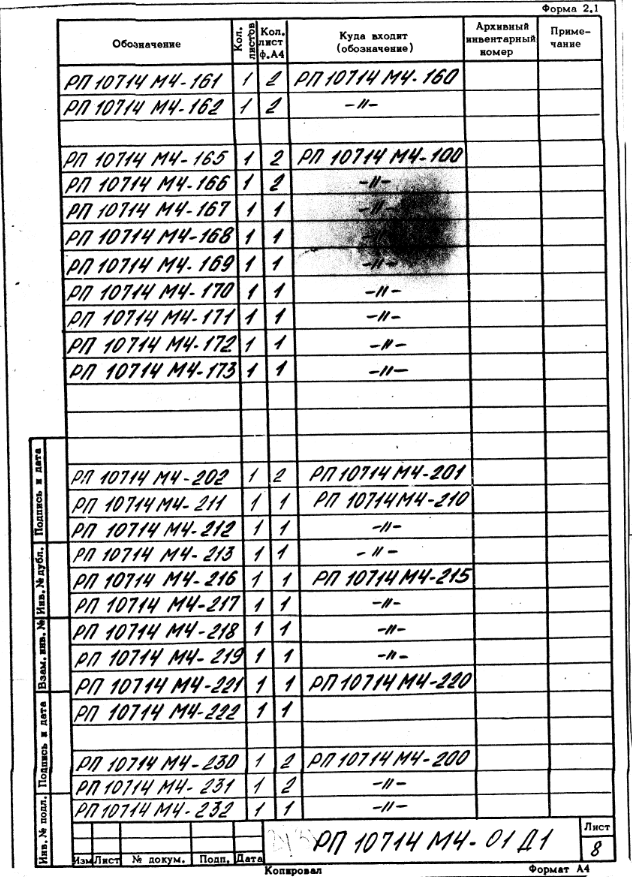 Форма 2.1
Обозначение Кол. листов Кол. лист ф.А4 Куда входит (обозначение) Архивный инвентарный номер Приме-чание
РП 10714 М4-161 1 2 РП 10714 М4-160
РП 10714 М4-162 1 2 -//-
РП 10714 М4-165 1 2 РП 10714 М4-100
РП 10714 М4-166 1 2 -//-
РП 10714 М4-167 1 1 -//-
РП 10714 М4-168 1 1
РП 10714 М4-169 1 1 -//-
РП 10714 М4-170 1 1 -//-
РП 10714 М4-171 1 1 -//-
РП 10714 М4-172 1 1 -//-
РП 10714 М4-173 1 1 -//-
РП 10714 М4-202 1 2 РП 10714 М4-201
РП 10714 М4-211 1 1 РП 10714 М4-210
РП 10714 М4-212 1 1 -//-
РП 10714 М4-213 1 1 -//-
РП 10714 М4-216 1 1 РП 10714 М4-215
РП 10714 М4-217 1 1 -//-
РП 10714 М4-218 1 1 -//-
РП 10714 М4-219 1 1 -//-
РП 10714 М4-221 1 1 РП 10714 М4-220
РП 10714 М4-222 1 1
РП 10714 М4-230 1 2 РП 10714 М4-200
РП 10714 М4-231 1 2 -//-
РП 10714 М4-232 1 1 -//-
Инв. № подл. Подпись и дата Взам. инв. № Инв. № дубл. Подпись и дата
РП 10714 М4-01 Д1
Лист
8
Изм Лист № докум. Подп. Дата
Копировал Формат А4